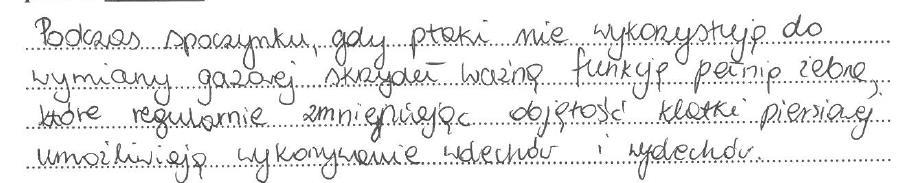 Podczas spoczynku, gdy ptaki nie wykorzystują do
wymiany gazowej skrzydeł ważną funkcję pełnią żebra,
które regularnie zmniejszając objętość klatki piersiowej
umożliwiają wykonywanie wdechów i wydechów.